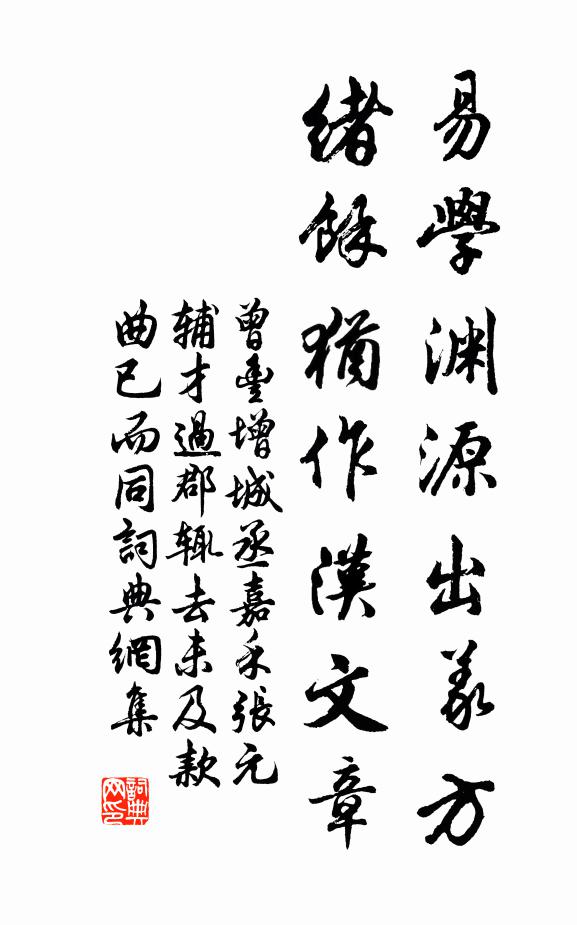 易學淵源出義方
緒餘猶作漢文章
曾豐增城丞嘉禾張元
辅才過郡辄去未及款
曲已而同詞典網集
詞典网印